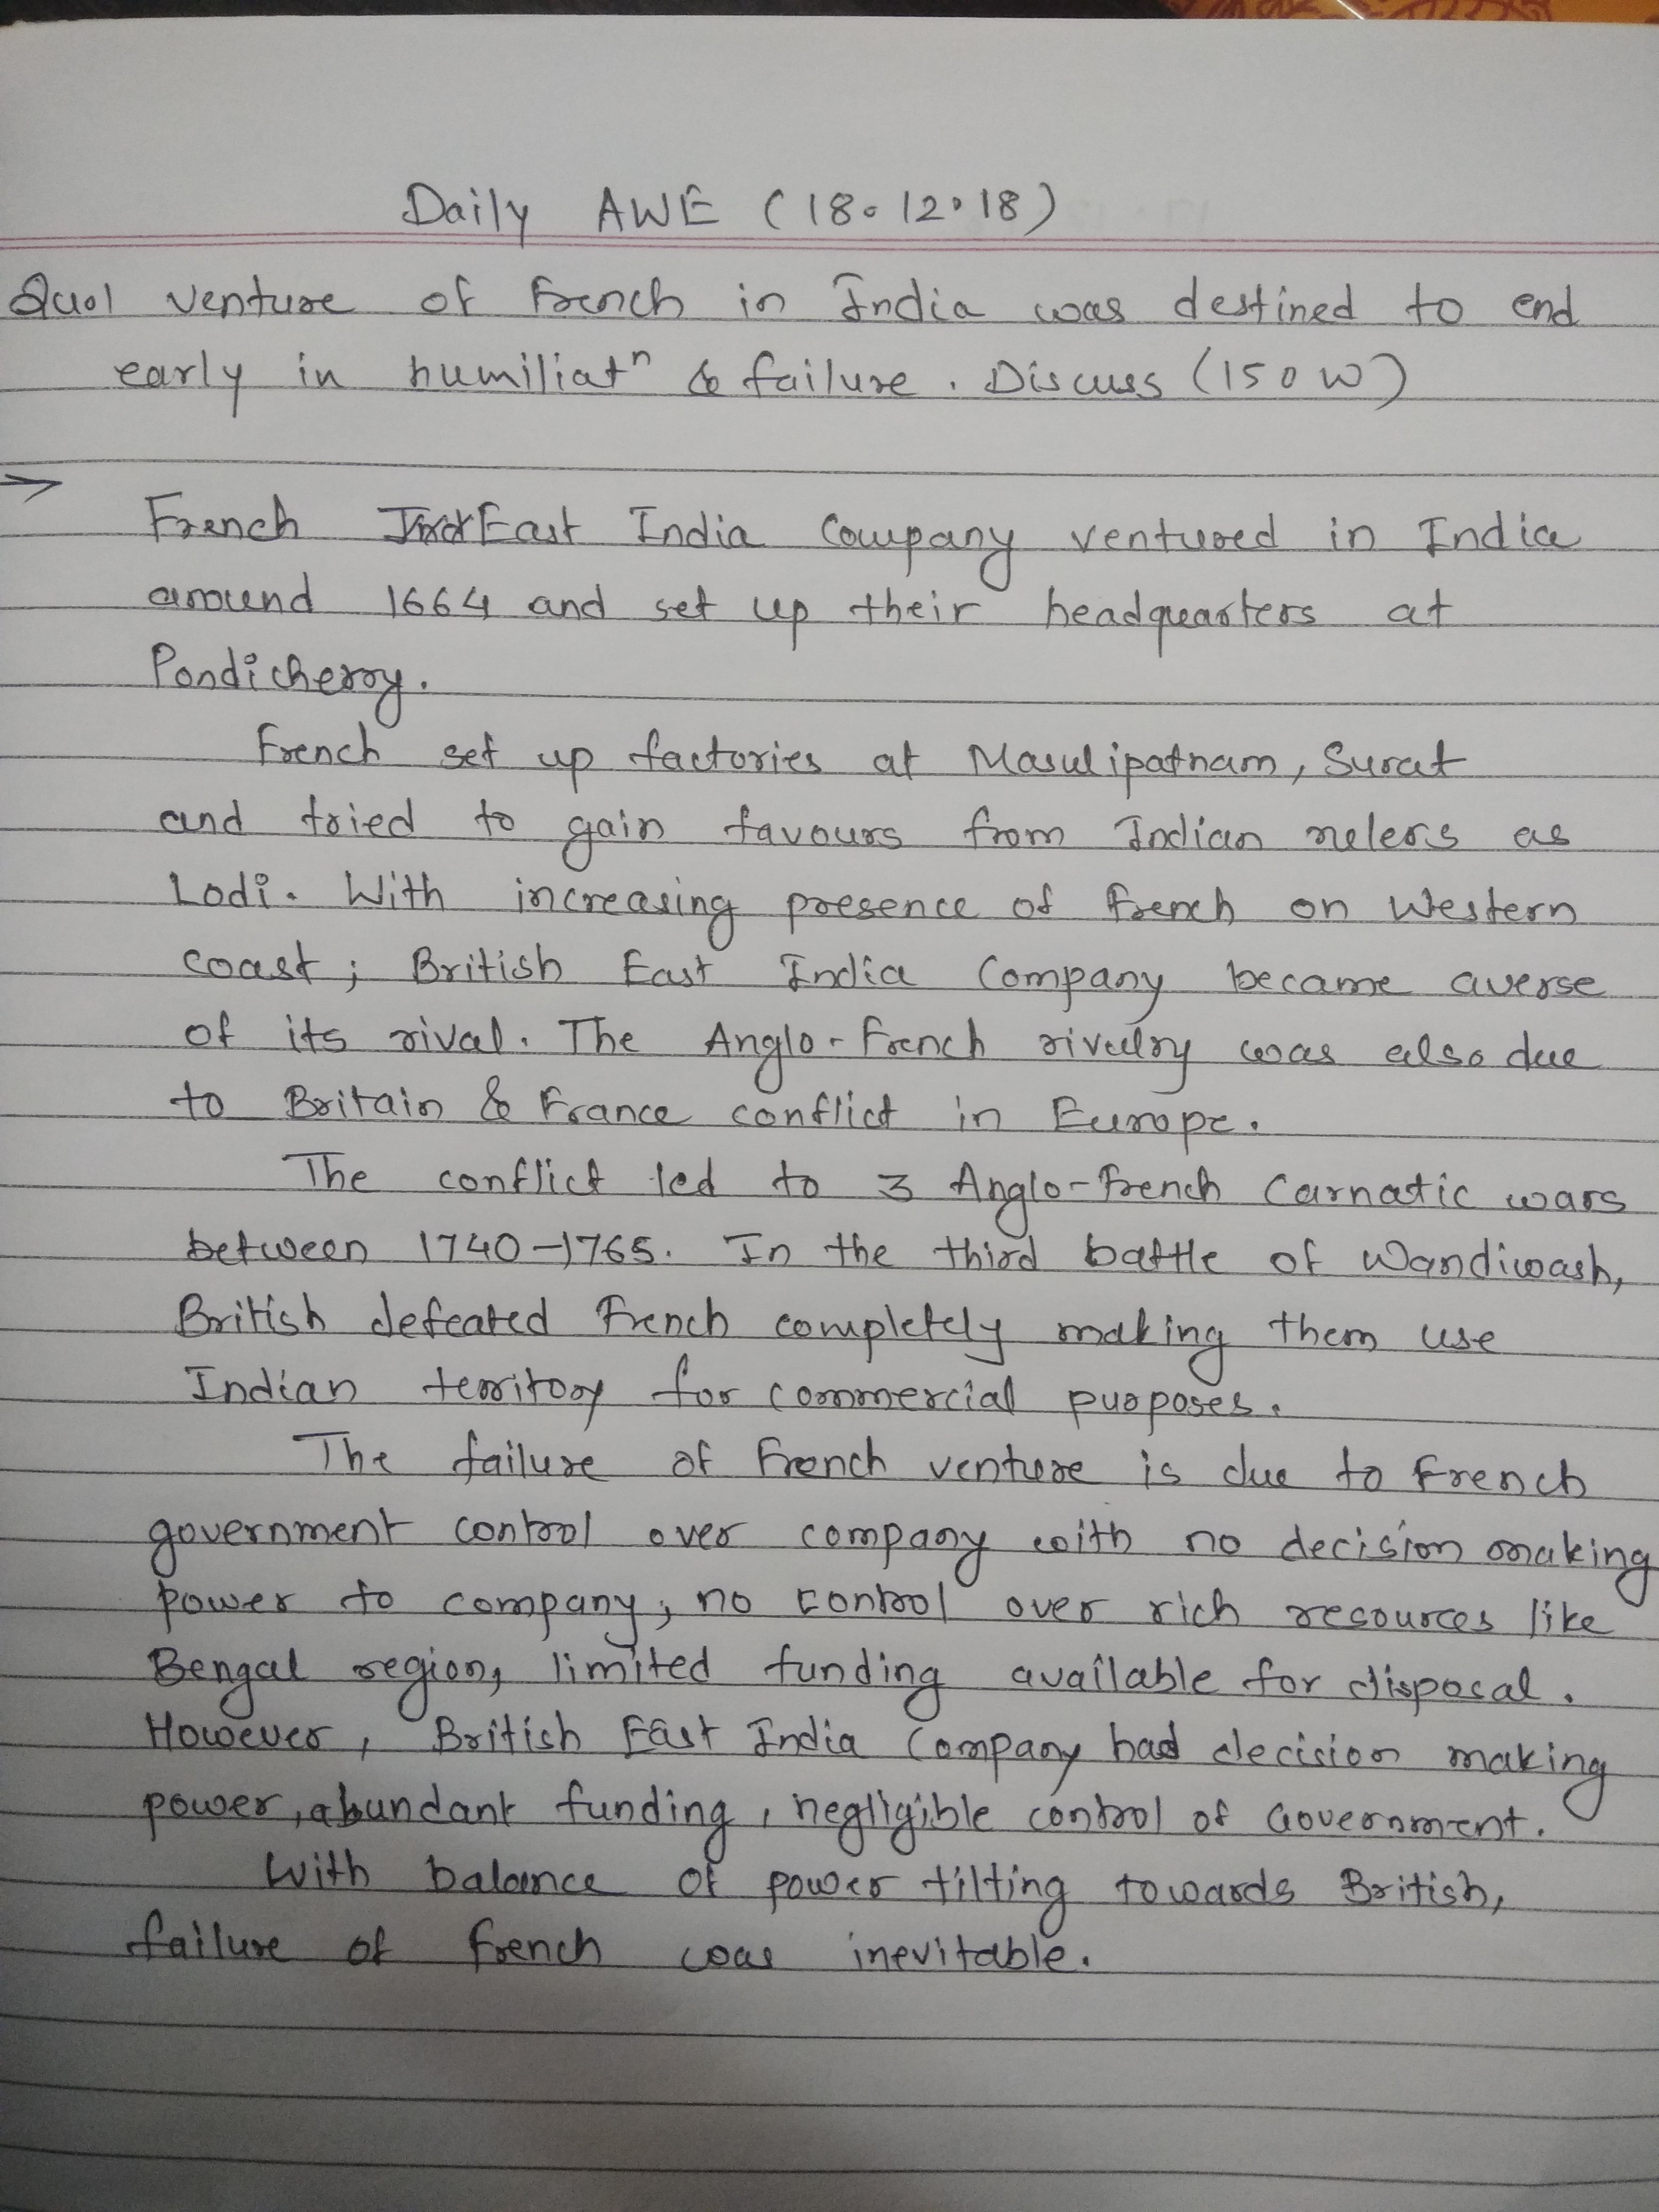 Daily AWE (18.12.18)
Que1 venture of French in India was destined to end
early in humiliatn & failure. Discuss (150 W)
→
French East India Company ventured in India
around 1664 and set up their headquarters at
Pondicherry.
French set up factories at Masulipatnam, Surat
and tried to gain favours from Indian rulers as
Lodi. With increasing presence of French on Western
coast; British East India Company became averse
of its rival. The Anglo-French rivalry was also due
to Britain & France conflict in Europe.
The conflict led to 3 Anglo-French Carnatic wars
between 1740-1765. In the third battle of Wandiwash,
British defeated French completely making them use
Indian territory for commercial purposes.
The failure of French venture is due to French
government control over company with no decision making
power to company, no control over rich resources like
Bengal region, limited funding available for disposal.
However, British East India Company had decision making
power, abundant funding, negligible control of Government.
With balance of power tilting towards British,
failure of French was inevitable.